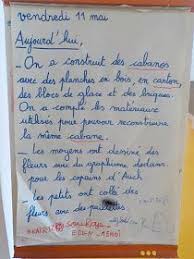 vendredi 11 mai
Aujourd'hui,
- On a construit des cabanes
avec des planches en bois, en carton,
des blocs de glace et des briques.
On a compté les matériaux
utilisés pour pouvoir reconstruire
la même cabane.
- Les moyens ont dessiné des
fleurs avec du graphisme dedans
pour les copains d'Auch
- Les petits ont collé des
fleurs avec des
EDEN